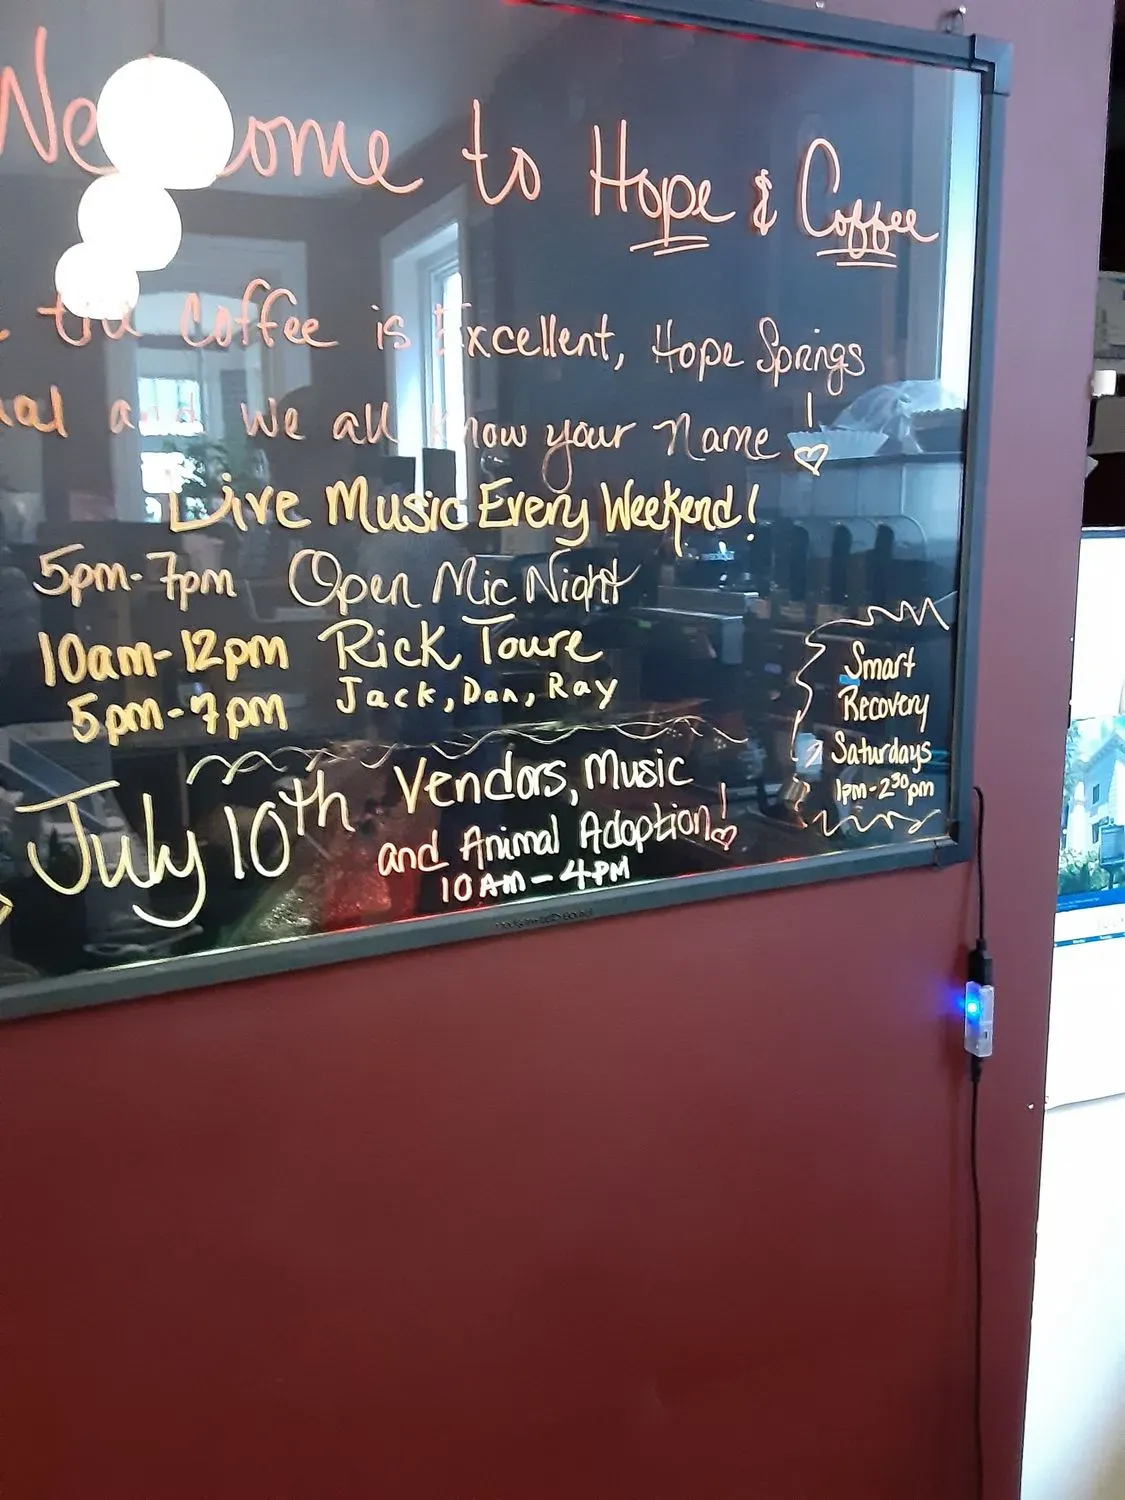 Welcome to Hope & Coffee
the coffee is Excellent, Hope Springs
and we all know your Name!
Live Music Every Weekend!
5pm-7pm Open Mic Night
10am-12pm Rick Toure
5pm-7pm Jack, Dan, Ray
July 10th Vendors, Music
and Animal Adoption!
10AM-4PM
Smart
Recovery
Saturdays
1pm-2³⁰pm